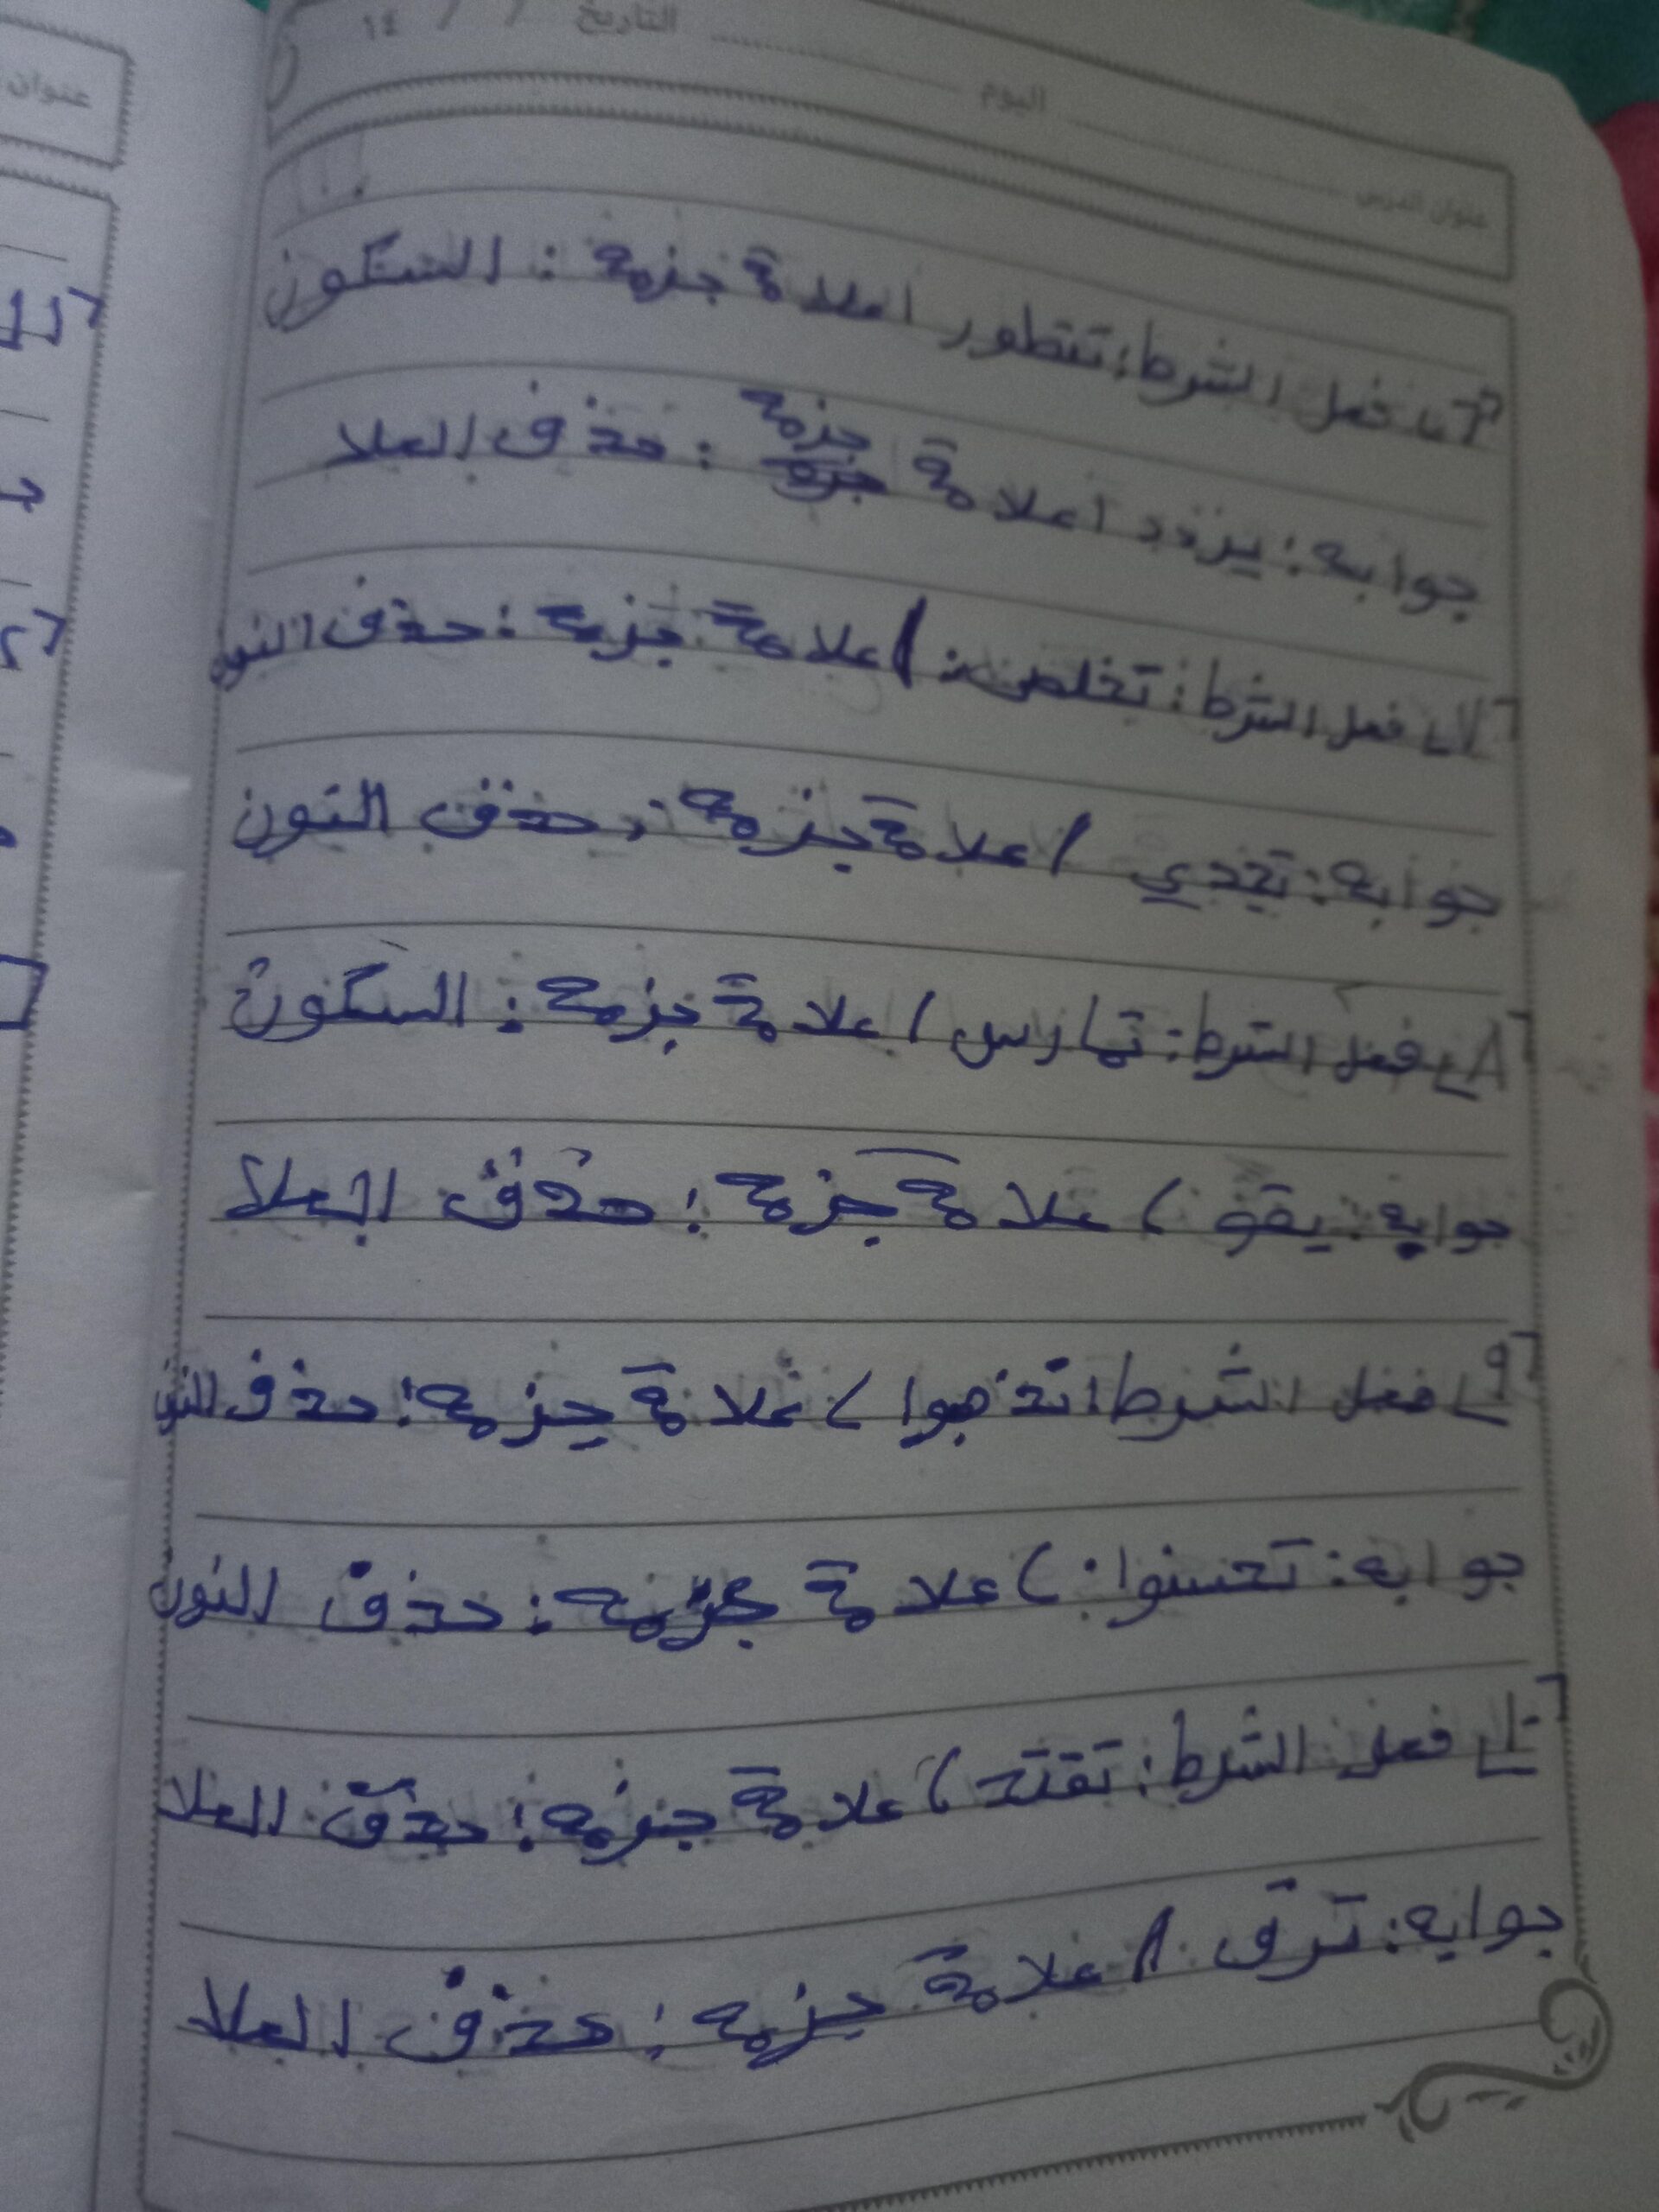 التاريخ / / ١٤
اليوم
عنوان الدرس
عنوان
٦- فعل الشرط: تتطور / علامة جزمه: السكون
جوابه: يزدد / علامة جزمه: حذف العلا
٧- فعل الشرط: تخلصي / علامة جزمه: حذف النون
جوابه: تجدي / علامة جزمه: حذف النون
٨- فعل الشرط: تمارس / علامة جزمه: السكون
جوابه: يقو / علامة جزمه: حذف العلا
٩- فعل الشرط: تذهبوا / علامة جزمه: حذف النو
جوابه: تحسنوا / علامة جزمه: حذف النون
فعل الشرط: تقتد / علامة جزمه: حذف العلا
جوابه: ترق / علامة جزمه: حذف العلا